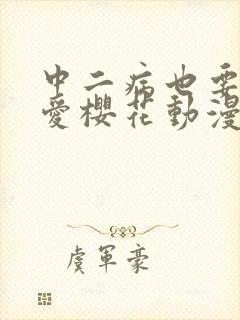 中二病也要
愛櫻花動漫
虞軍豪